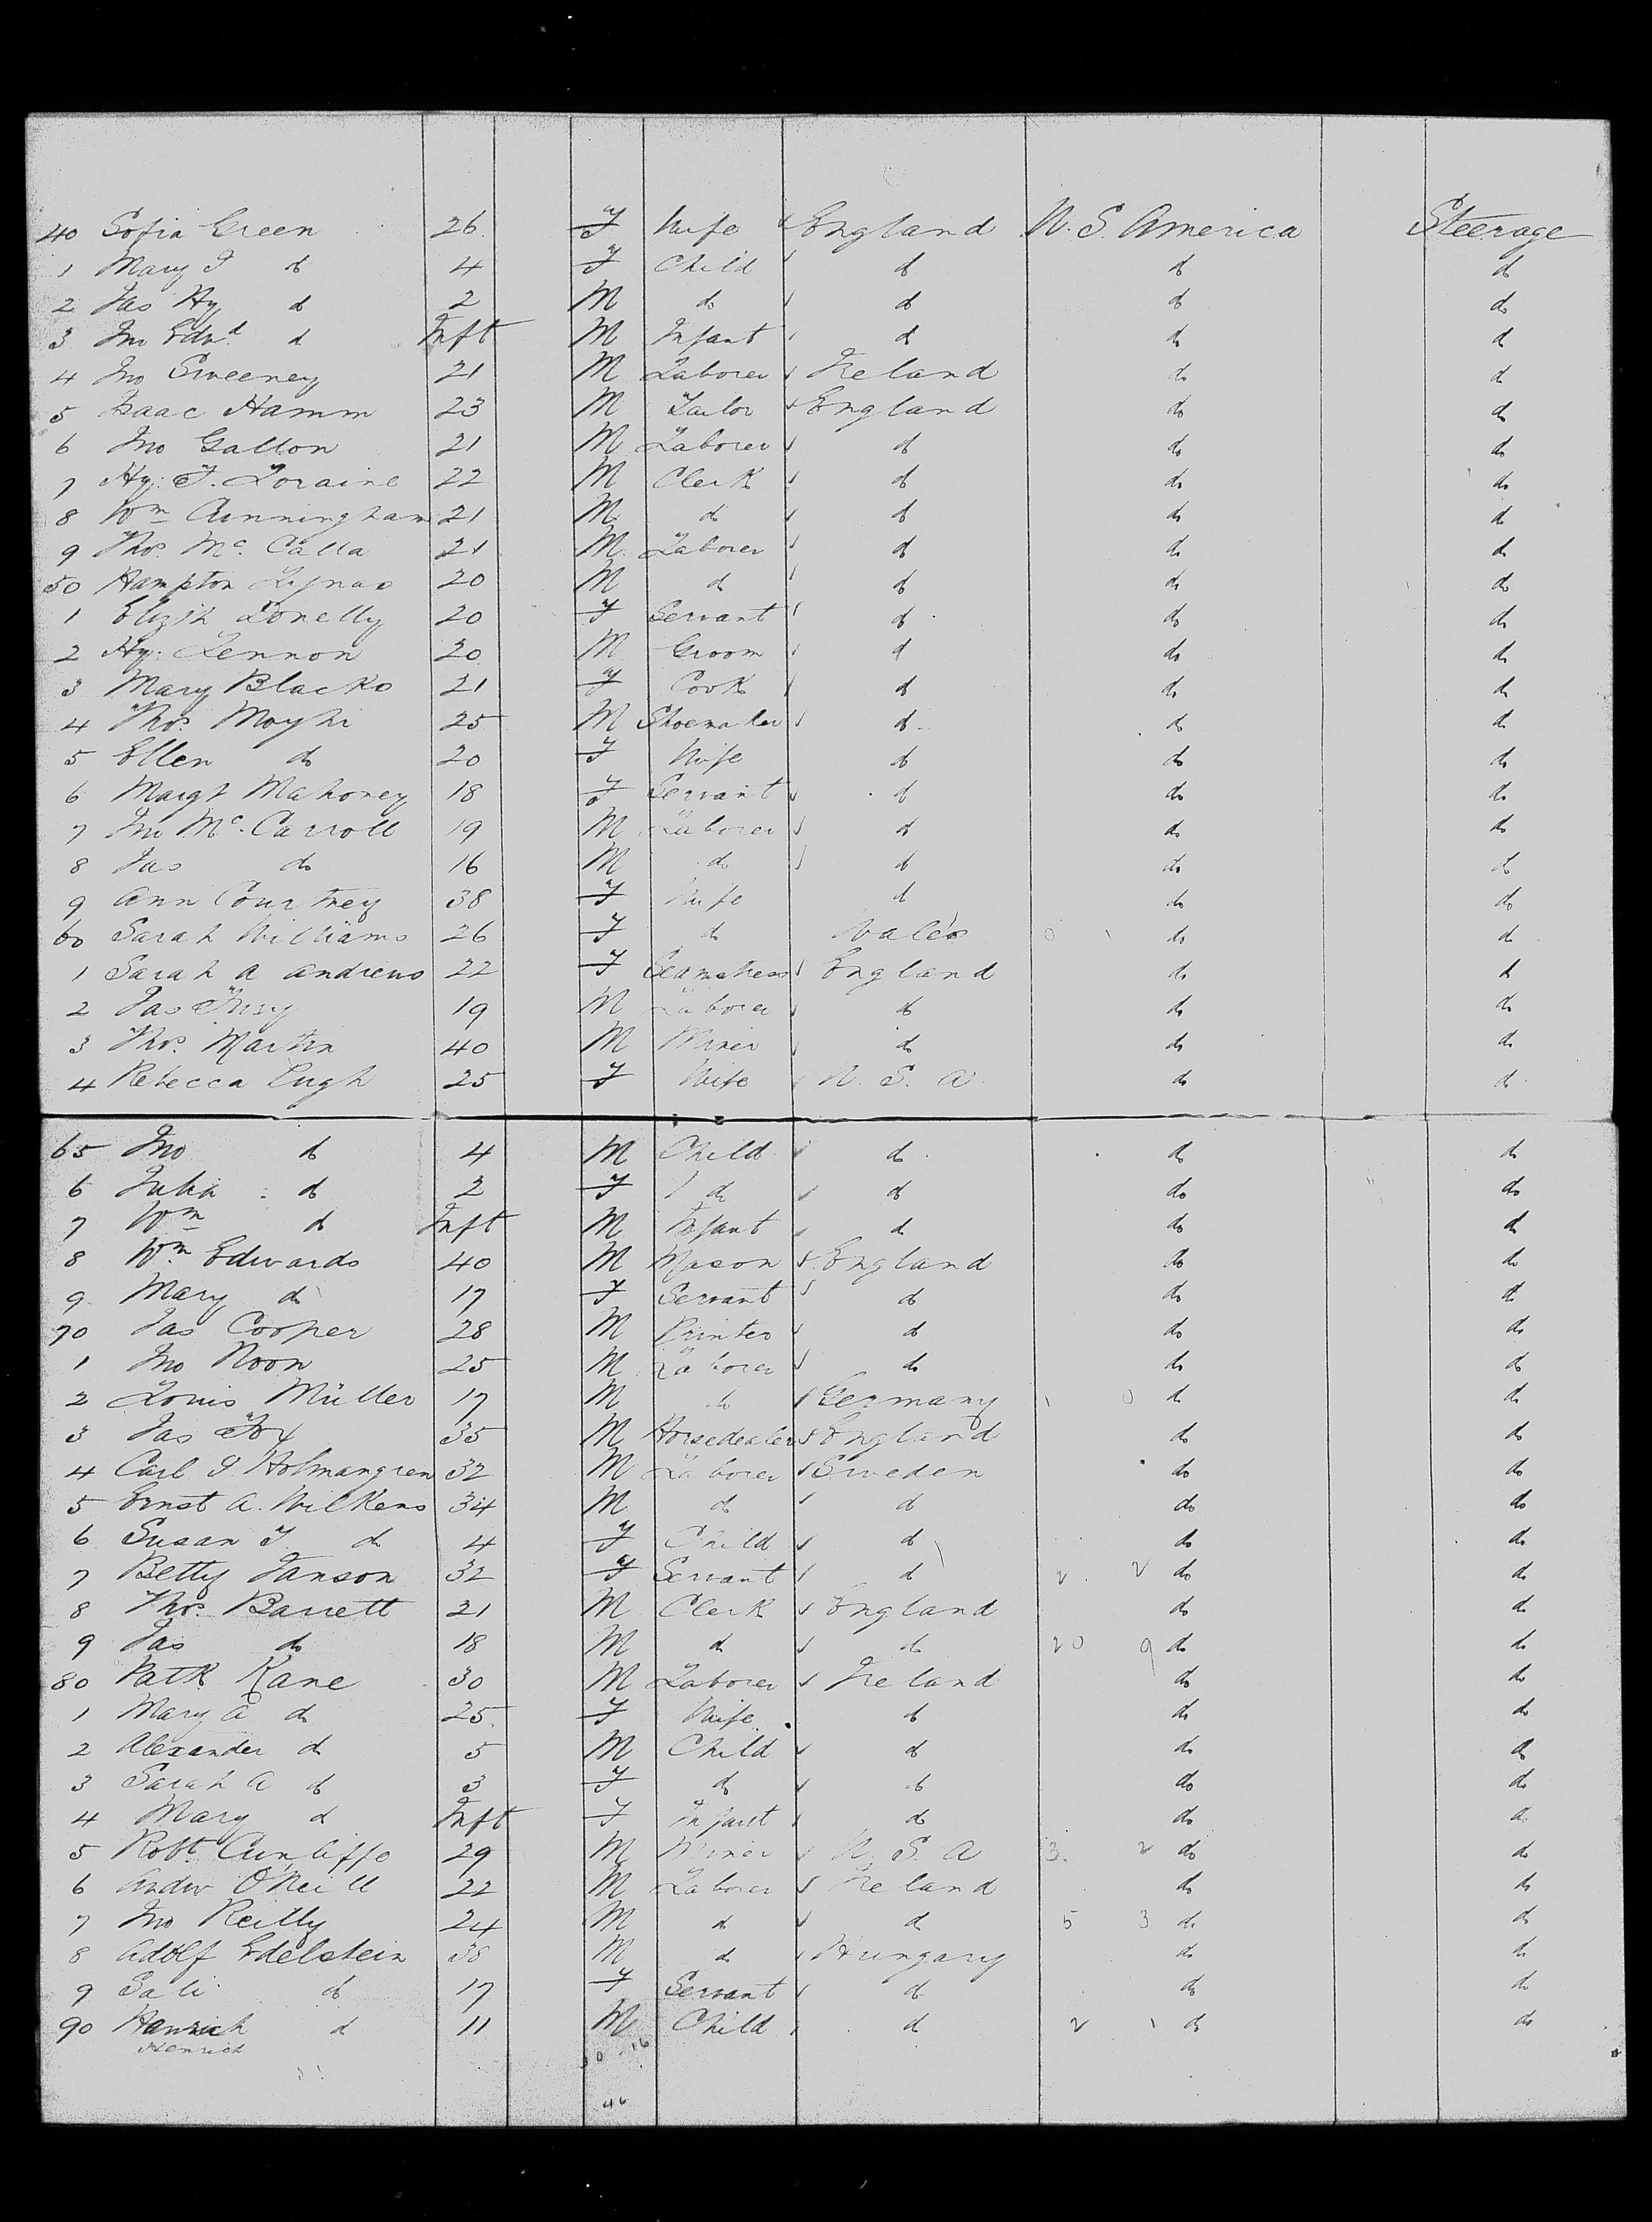 40 Sofia Green 26 F Wife England U.S. America Steerage
1 Mary J do 4 F Child do do do
2 Jas Hy do 2 M do do do do
3 Jno Edwd do Inft M Infant do do do
4 Jno Sweeney 21 M Laborer Ireland do do
5 Isaac Hamm 23 M Tailor England do do
6 Jno Gallon 21 M Laborer do do do
7 Hy. F. Loraine 22 M Clerk do do do
8 Wm Cunningham 21 M do do do do
9 Thos. Mc. Calla 21 M Laborer do do do
50 Hampton 20 M do do do do
1 Elizth Donelly 20 F Servant do do do
2 Hy. Lennon 20 M Groom do do do
3 Mary Blacko 21 F Cook do do do
4 Thos. 25 M Shoemaker do do do
5 Ellen do 20 F Wife do do do
6 Margt Mahoney 18 F Servant do do do
7 Jno Mc. Carroll 19 M Laborer do do do
8 Jas do 16 M do do do do
9 Ann Courtney 38 F Wife do do do
60 Sarah Williams 26 F do Wales do do
1 Sarah A Andrews 22 F Seamstress England do do
2 Jas 19 M Laborer do do do
3 Thos. Martin 40 M Miner do do do
4 Rebecca Pugh 25 F Wife U. S. A do do
65 Jno do 4 M Child do do do
6 Julia do 2 F do do do do
7 Wm do Inft M Infant do do do
8 Wm Edwards 40 M Mason England do do
9 Mary do 17 F Servant do do do
70 Jas Cooper 28 M Printer do do do
1 Jno Noon 25 M Laborer do do do
2 Louis Müller 17 M do Germany do do
3 Jas Fox 35 M Horsedealer England do do
4 Carl J. Holmangren 32 M Laborer Sweden do do
5 Ernst A. Wilkens 34 M do do do do
6 Susan F. do 4 F Child do do do
7 Betty Janson 32 F Servant do 2 2 do do
8 Thos. Barrett 21 M Clerk England do do
9 Jas do 18 M do do 20 9 do do
80 Patk Kane 30 M Laborer Ireland do do
1 Mary A do 25 F Wife do do do
2 Alexander do 5 M Child do do do
3 Sarah A do 3 F do do do do
4 Mary do Inft F Infant do do do
5 Robt Cunliffe 29 M Miner U. S. A 3. 2 do do
6 Andw O'Neill 22 M Laborer Ireland do do
7 Jno Reilly 24 M do do 5 3 do do
8 Adolf Edelstein 38 M do Hungary do do
9 Sali do 17 F Servant do do do
90 do 11 M Child do 2 1 do do
Henrich 30 16
46